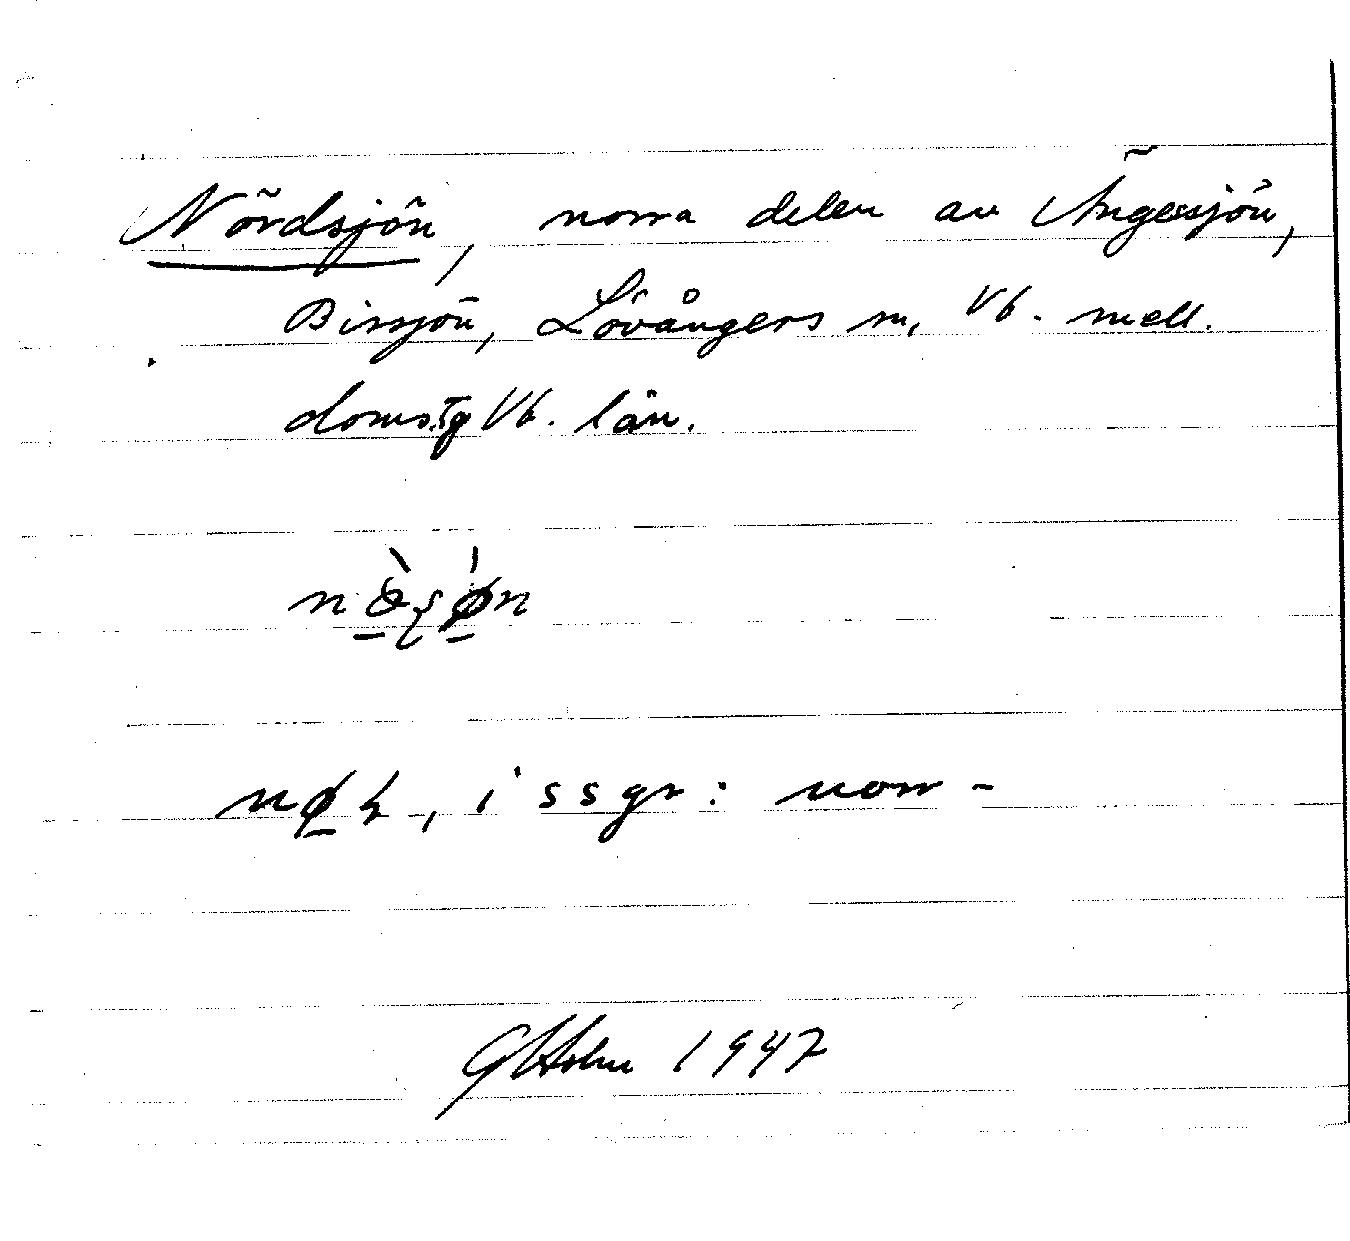 Nördsjön, norra delen av Ängessjön,
Bissjön, Lövångers sn, Vb. mell.
doms.g Vb. län.
i ssgr: norr-
GHolm 1947